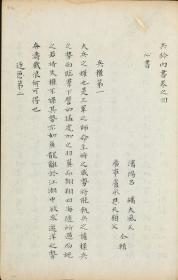 兵鈐內書卷之四
心書
瀋陽呂 磻大 父
廣寧 永 天植父 仝輯
兵權第一
夫兵之權也是三軍之師命主將之威勢將能執兵之權操兵
之勢而臨羣下譬如猛虎加之羽翼而翱翔四海隨所遇而施
之若將失權不操其勢亦如魚龍離於江湖中欲求游洋之勢
奔濤戲浪何可得也
逐惡第二